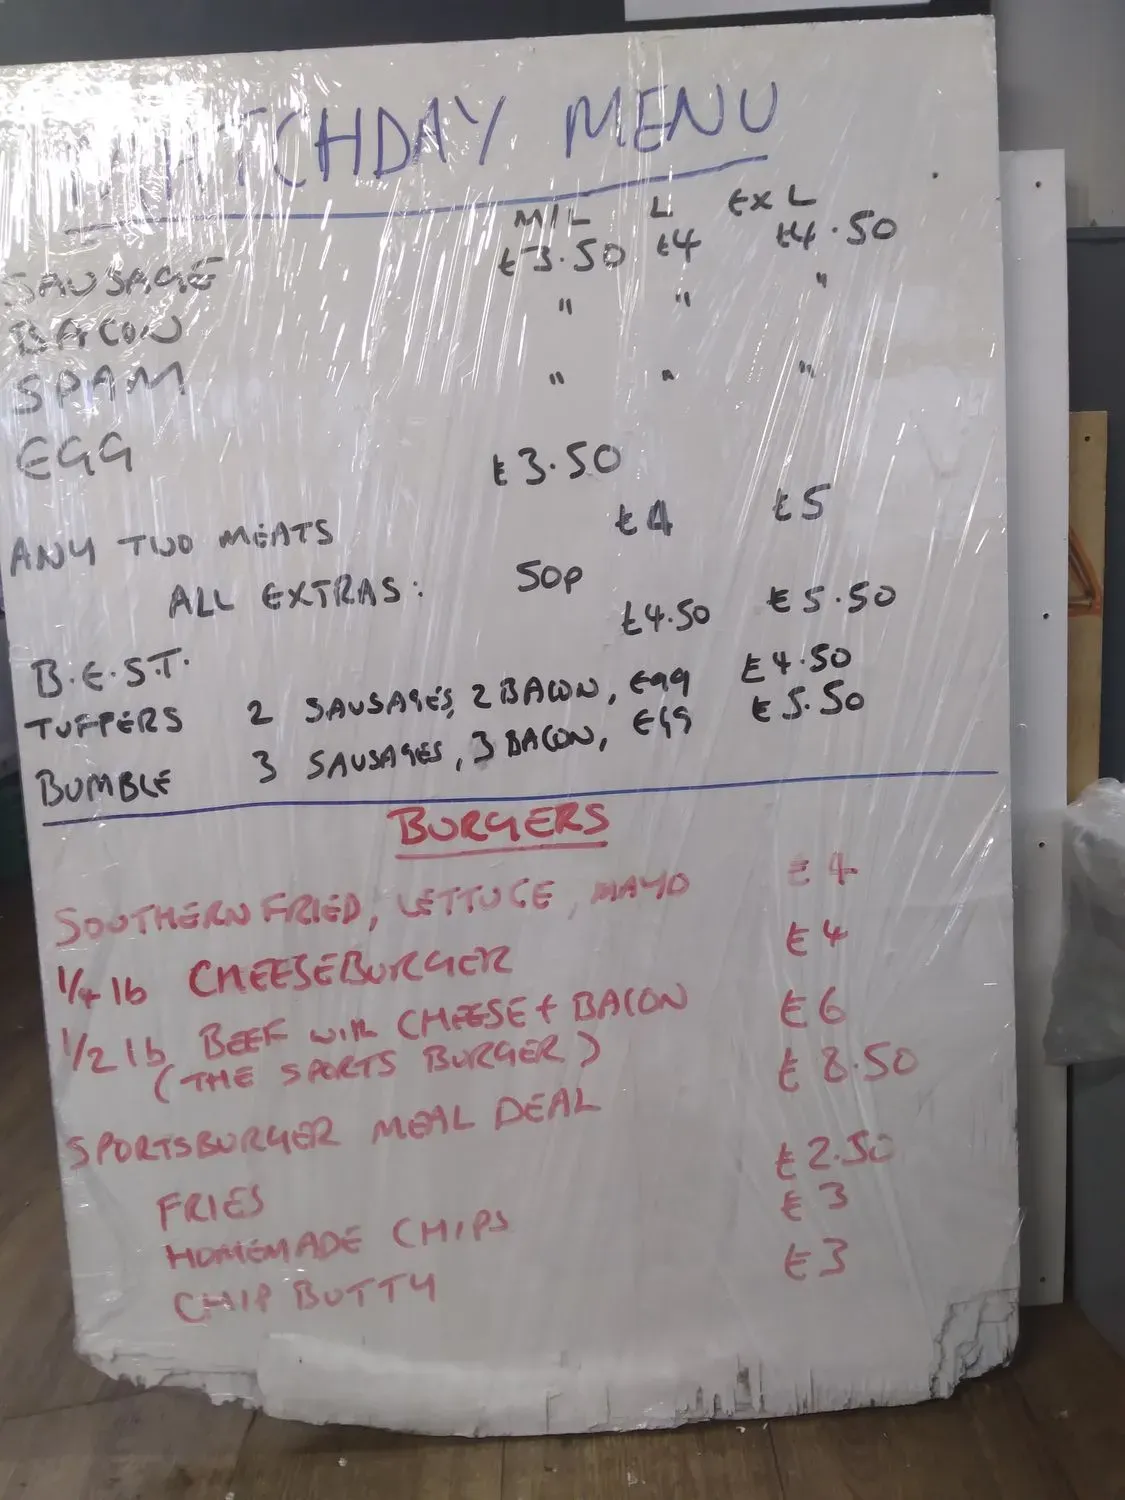 MATCHDAY MENU
M/L L EX L
SAUSAGE £3.50 £4 £4.50
BACON " " "
SPAM " " "
EGG £3.50
ANY TWO MEATS £4 £5
ALL EXTRAS: 50p
B.E.S.T. £4.50 £5.50
TUFFERS 2 SAUSAGES, 2 BACON, EGG £4.50
BUMBLE 3 SAUSAGES, 3 BACON, EGG £5.50
BURGERS
SOUTHERN FRIED, LETTUCE, MAYO £4
1/4 lb CHEESEBURGER £4
1/2 lb BEEF with CHEESE + BACON £6
(THE SPORTS BURGER)
SPORTSBURGER MEAL DEAL £8.50
FRIES £2.50
HOMEMADE CHIPS £3
CHIP BUTTY £3